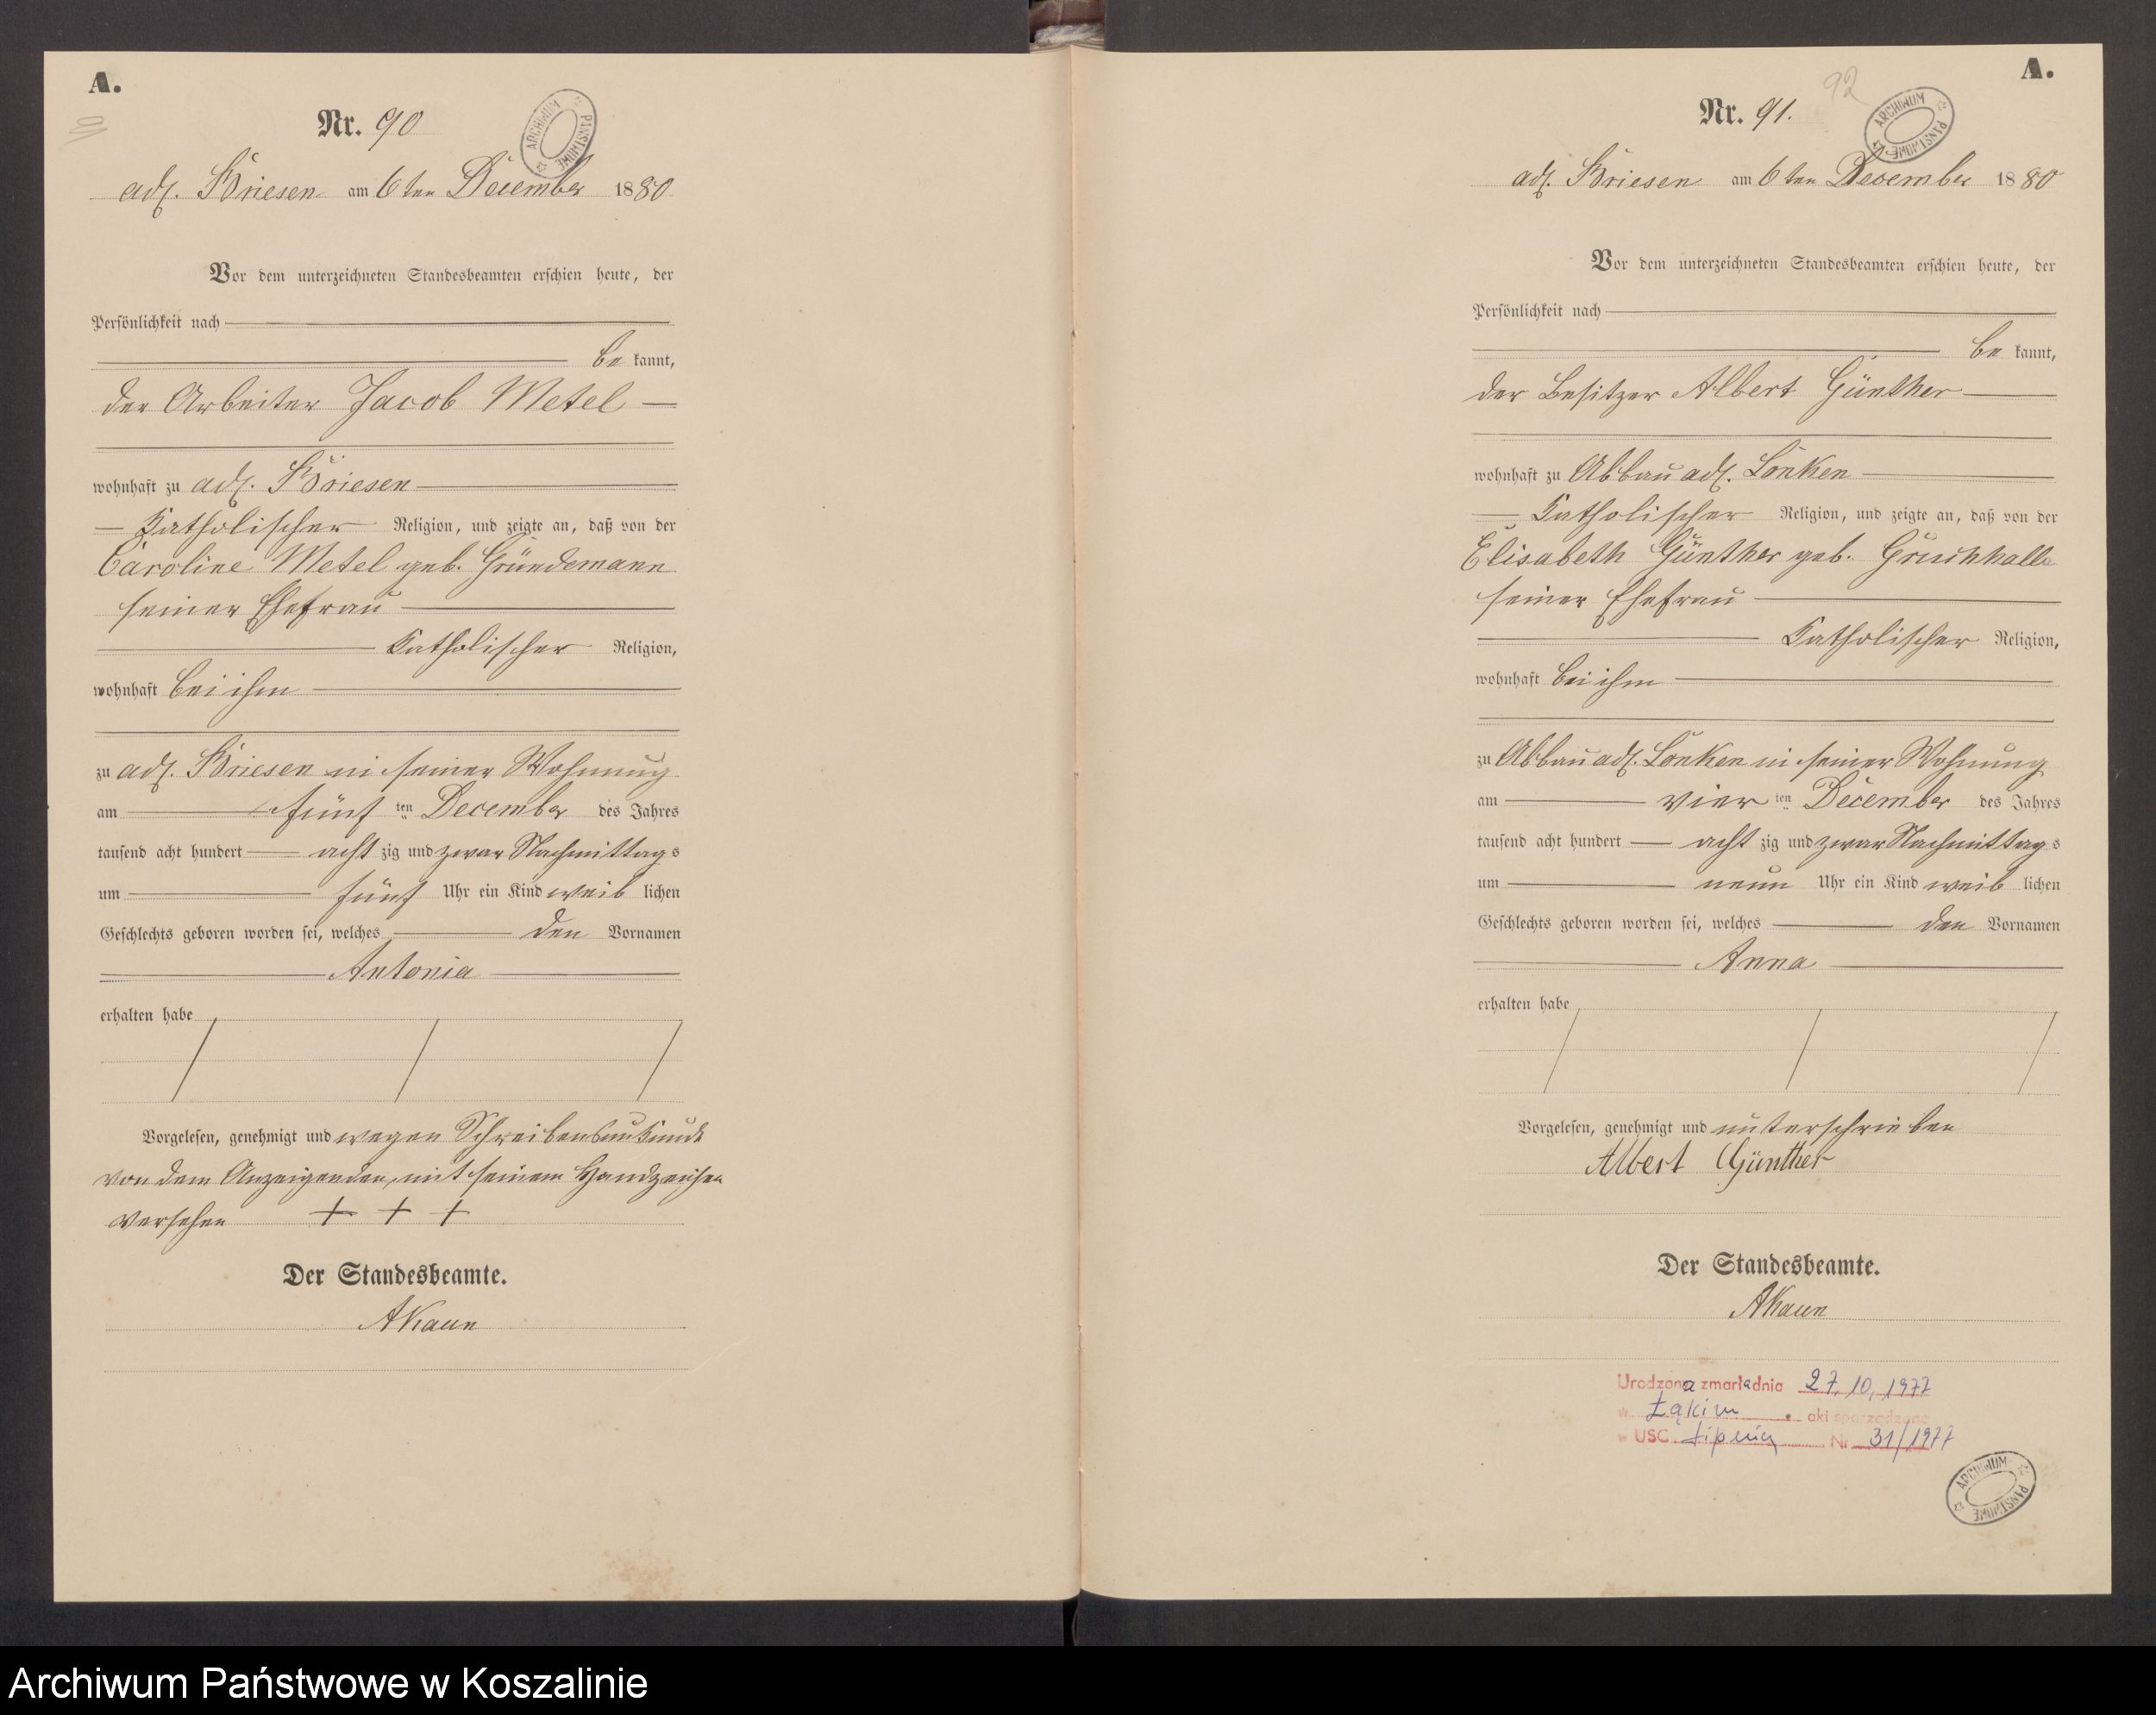 A.
Nr. 90
ARCHIWUM PAŃSTWOWE
adl. Briesen am 6ten December 1880
Vor dem unterzeichneten Standesbeamten erschien heute, der
Persönlichkeit nach
be kannt,
der Arbeiter Jacob Metel
wohnhaft zu adl. Briesen
Katholischer Religion, und zeigte an, daß von der
Caroline Metel geb. Gründemann
seiner Ehefrau
Katholischer Religion,
wohnhaft bei ihm
zu adl. Briesen in seiner Wohnung
am fünf ten December des Jahres
tausend acht hundert acht zig und zwar Nachmittags
um fünf Uhr ein Kind weib lichen
Geschlechts geboren worden sei, welches den Vornamen
Antonia
erhalten habe
Vorgelesen, genehmigt und wegen Schreibensunkunde
von dem Anzeigenden, mit seinem Handzeichen
versehen + + +
Der Standesbeamte.
AKaun
A.
92
Nr. 91.
ARCHIWUM PAŃSTWOWE
adl. Briesen am 6ten December 1880
Vor dem unterzeichneten Standesbeamten erschien heute, der
Persönlichkeit nach
be kannt,
der Besitzer Albert Günther
wohnhaft zu Abbau adl. Lonken
Katholischer Religion, und zeigte an, daß von der
Elisabeth Günther geb. Gruchhalla
seiner Ehefrau
Katholischer Religion,
wohnhaft bei ihm
zu Abbau adl. Lonken in seiner Wohnung
am vier ten December des Jahres
tausend acht hundert acht zig und zwar Nachmittags
um neun Uhr ein Kind weib lichen
Geschlechts geboren worden sei, welches den Vornamen
Anna
erhalten habe
Vorgelesen, genehmigt und unterschrieben
Albert Günther
Der Standesbeamte.
AKaun
Urodzona zmarła dnia 27.10.1977
w Łąkim akt sporządzono
w USC Lipnica Nr 31/1977
ARCHIWUM PAŃSTWOWE
Archiwum Państwowe w Koszalinie